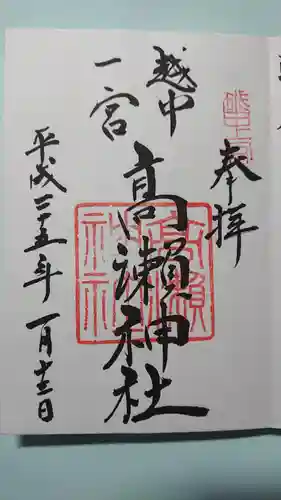 奉拝
越中
一宮
高瀬神社
平成二十五年一月十三日